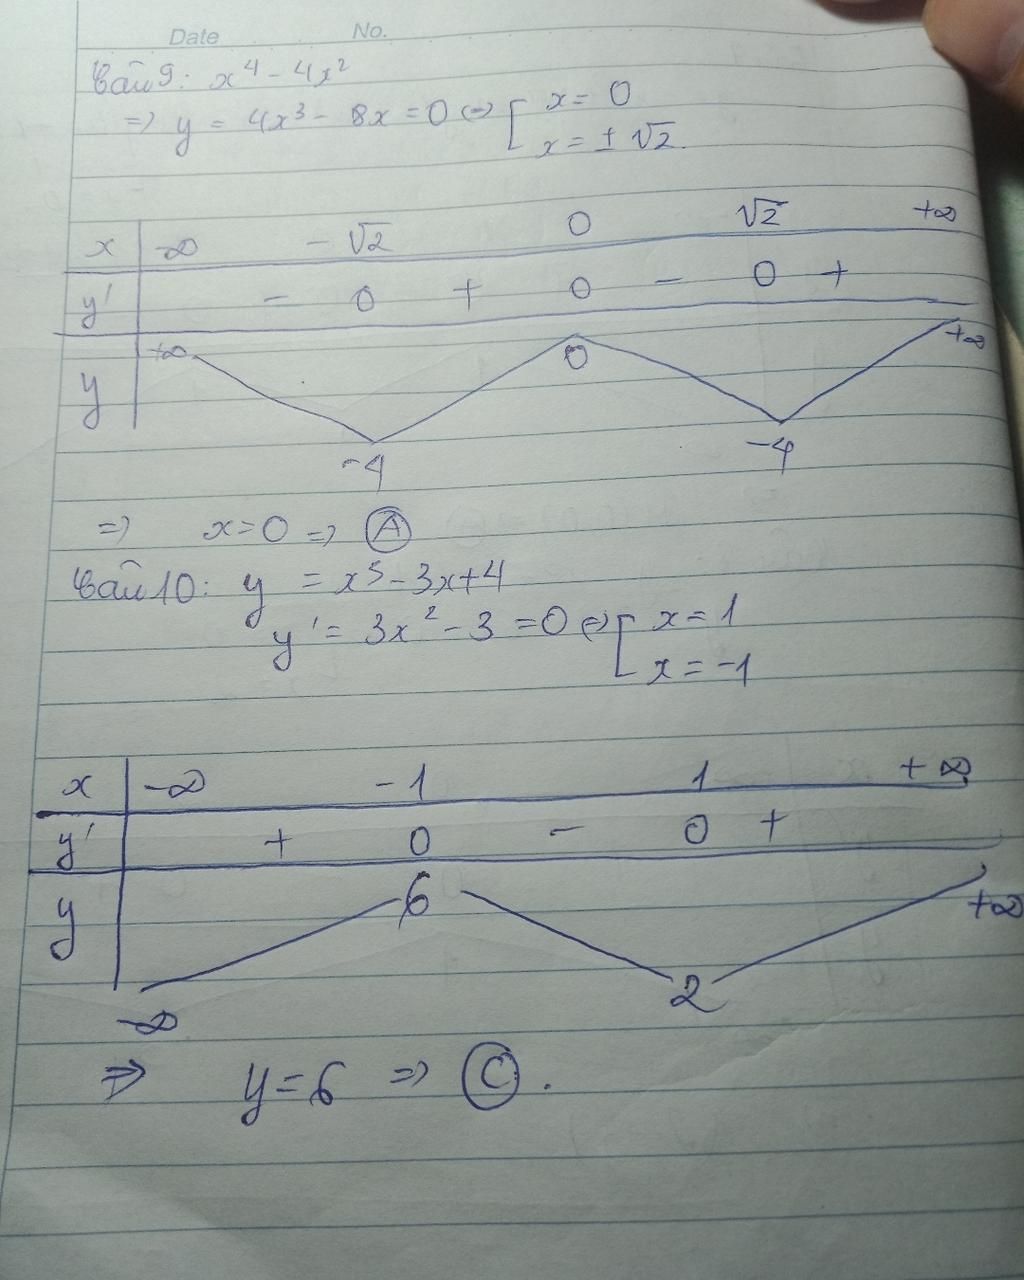 Date No.
Bài 9: x⁴ - 4x²
=> y = 4x³ - 8x = 0 <=> [ x = 0
x = ± √2.
x -∞ -√2 0 √2 +∞
y' - 0 + 0 - 0 +
y +∞ 0 +∞
-4 -4
=> x = 0 => A
Bài 10: y = x³ - 3x + 4
y' = 3x² - 3 = 0 <=> [ x = 1
x = -1
x -∞ -1 1 +∞
y' + 0 - 0 +
y 6 +∞
-∞ 2
=> y = 6 => C.